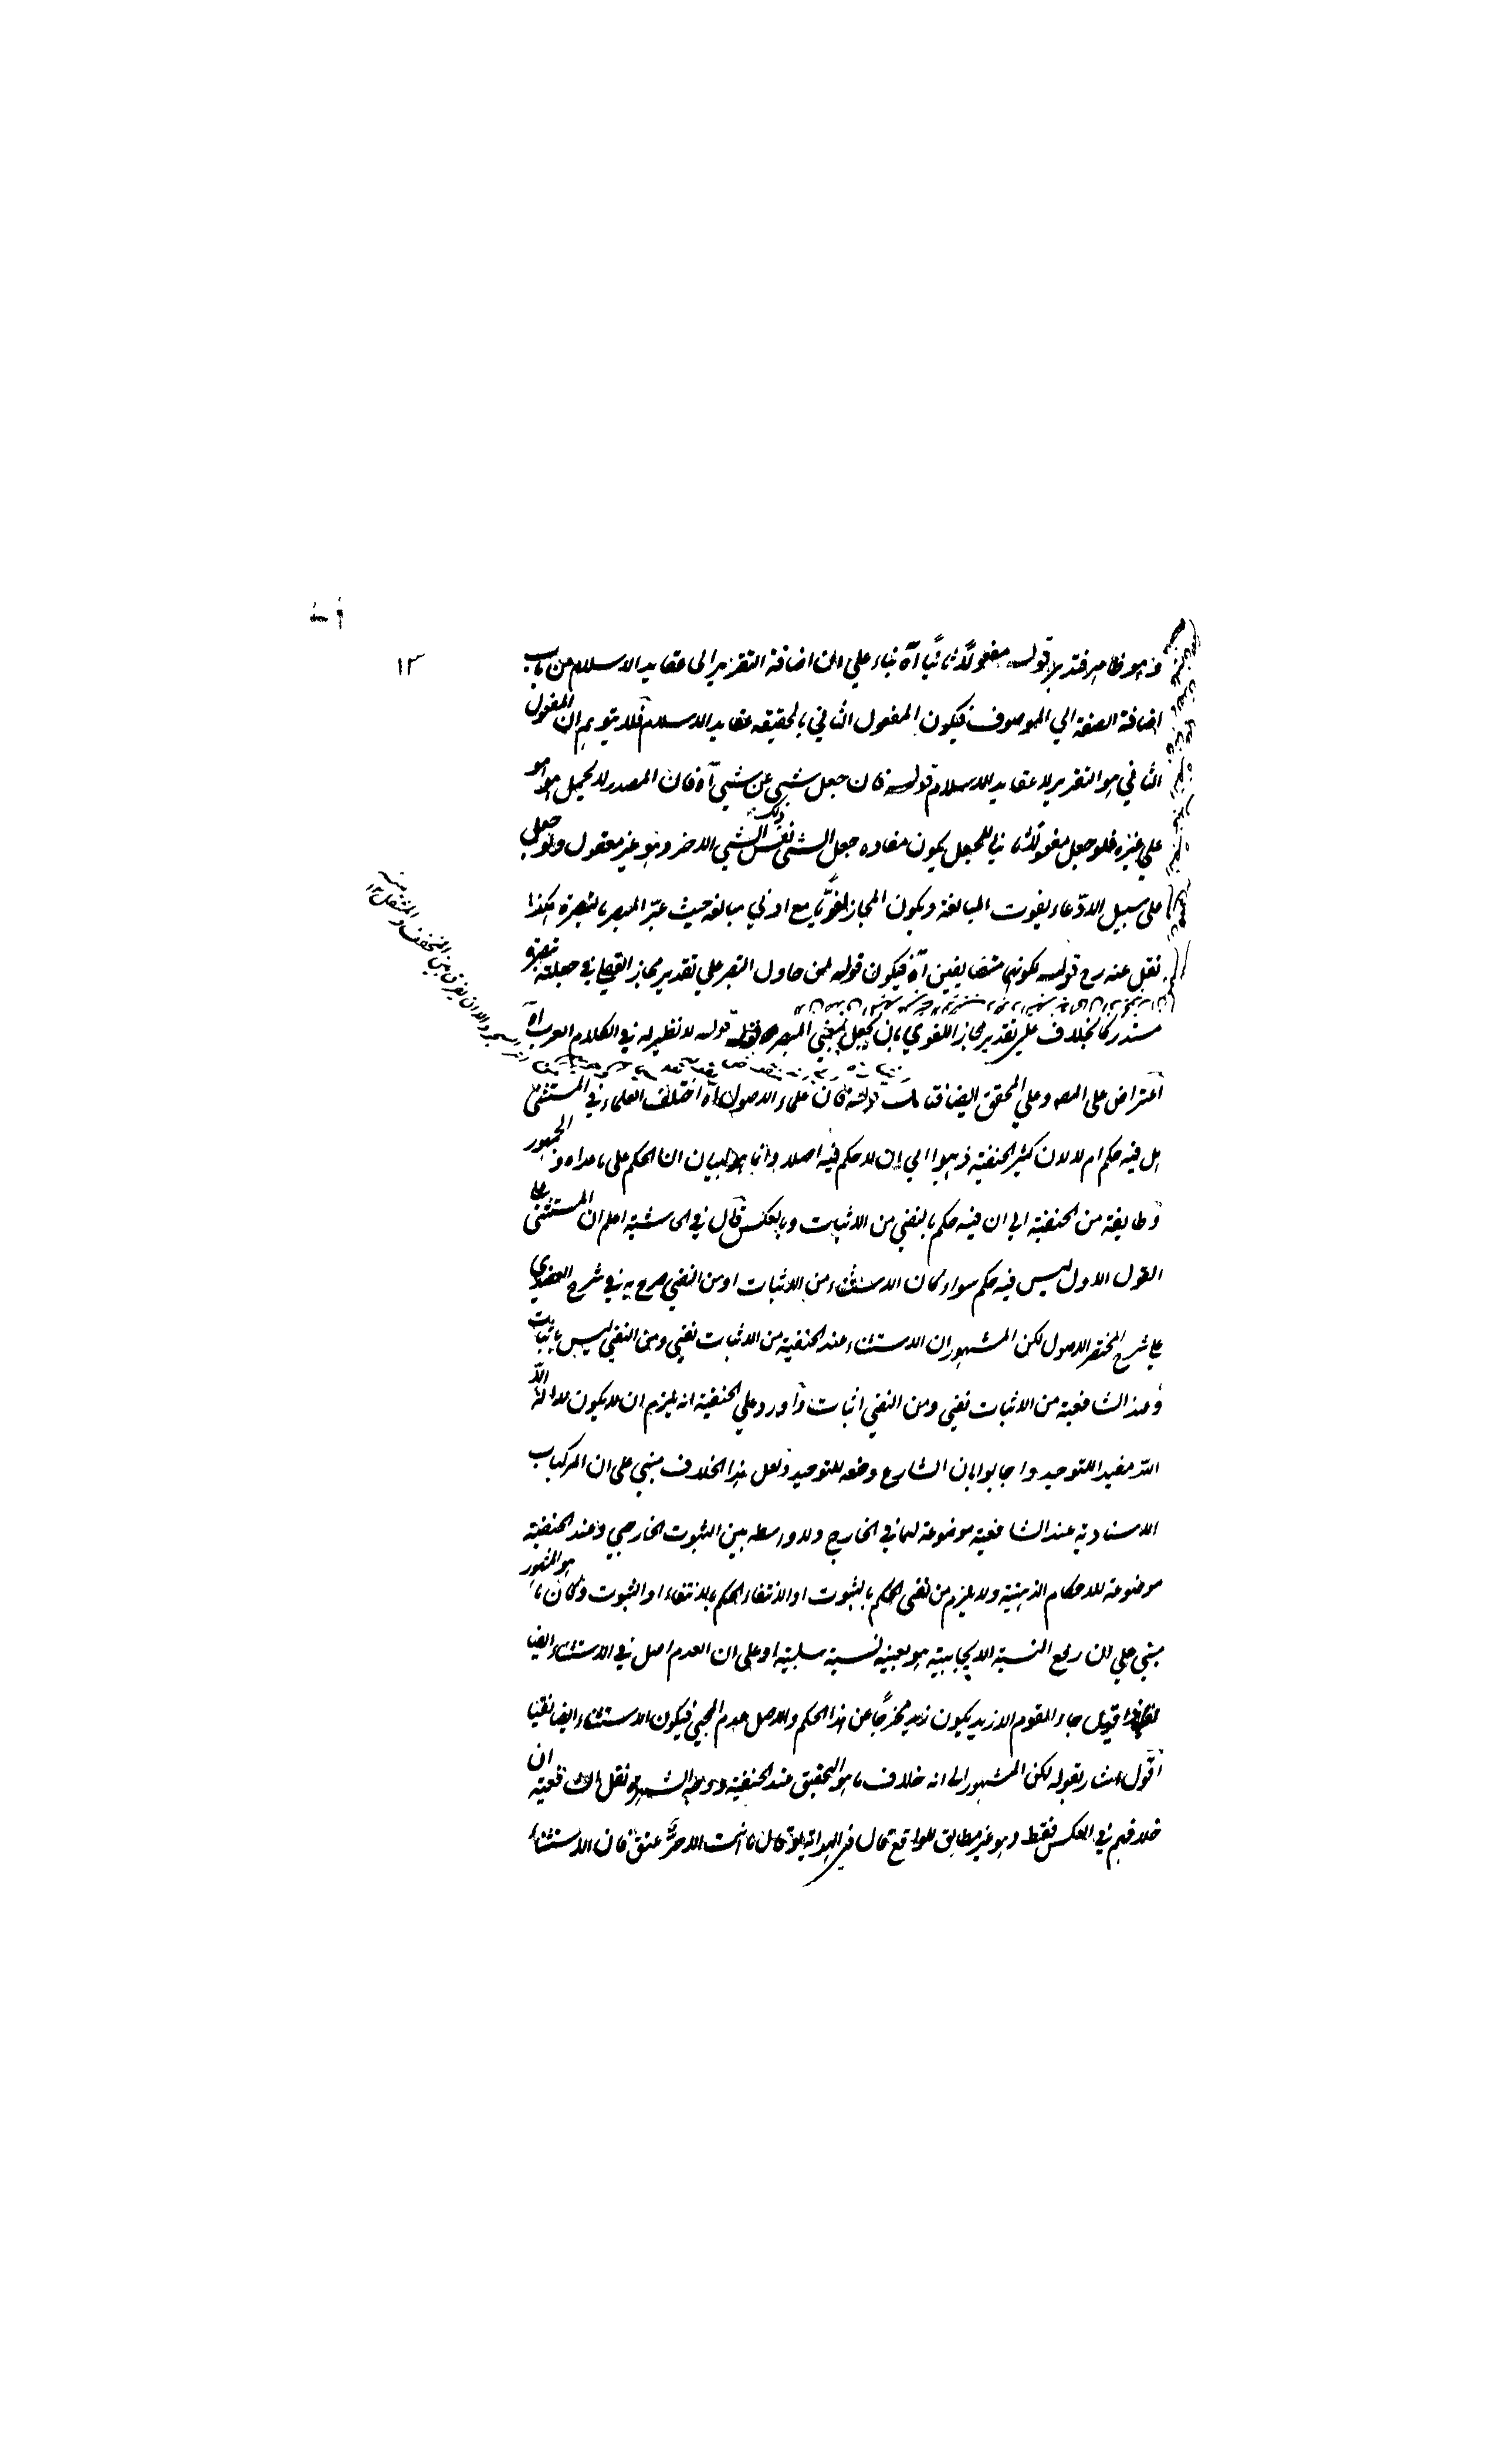 ١٣
وهو ظاهر فتدبر قوله مفعولا ثانيا آه بناء على ان اضافة التقرير الى عقايد الاسلام من باب
اضافة الصفة الى الموصوف فيكون المفعول الثاني بالحقيقة عقايد الاسلام فلا يتوهم ان المفعول
الثاني هو التقرير لا عقايد الاسلام قوله فان جعل شيء عن شيء آه فان المصدر لا يحمل هو هو
على غيره فلو جعل مفعولا ثانيا للجعل يكون مفاده جعل الشيء نفس ذلك الشيء الاخر وهو غير معقول ولو جعل
على سبيل الادعاء يفوت المبالغة ويكون المجاز لغويا مع ادنى مبالغة حيث عبر المبصر بالتبصرة هكذا
نقل عنه رح قوله لكونهما متضايفين آه فيكون قوله لمن حاول التبصر على تقدير مجاز العقلي في جعلته تبصرة
مستدركا بخلاف على تقدير مجاز اللغوي بان يجعل بمعنى المبصر قوله لا نظير له في الكلام العرب آه
اعتراض على المصـ وعلى المحقق ايضا فتأمل قوله فان علماء الاصول آه اختلف العلماء في المستثنى
هل فيه حكم ام لا لان كثير الحنفية ذهبوا الى ان لا حكم فيه اصلا وانما هو لبيان ان الحكم على ما عداه والجمهور
وطايفة من الحنفية الى ان فيه حكم بالنفي من الاثبات وبالعكس قال في الحاشية اعلم ان المستثنى على
القول الاول ليس فيه حكم سواء كان الاستثناء من الاثبات او من النفي صرح به في شرح العضدي
على شرح المختصر الاصول لكن المشهور ان الاستثناء عند الحنفية من الاثبات نفي ومن النفي ليس باثبات
وعند الشافعية من الاثبات نفي ومن النفي اثبات واورد على الحنفية انه يلزم ان لا يكون لا اله الا
الله مفيدا للتوحيد واجابوا بان الشارع وضعه للتوحيد ولعل هذا الخلاف مبني على ان المركبات
الاسنادية عند الشافعية موضوعة لما في الخارج ولا واسطة بين الثبوت الخارجي وعند الحنفية
موضوعة للاحكام الذهنية ولا يلزم من نفي الحكم بالثبوت او الانتفاء الحكم بالانتفاء او الثبوت وكان ما هو المشهور
مبني على ان رفع النسبة الايجابية هو بعينه نسبة سلبية او على ان العدم اصل في الاستثناء ايضا
فاذا قيل جاء القوم الا زيد يكون زيد مخرجا عن هذا الحكم والاصل عدم المجيء فيكون الاستثناء ايضا نفيا
اقول اشار بقوله لكن المشهور الى انه خلاف ما هو التحقيق عند الحنفية ووجه الشهرة نقل الشافعية ان
خلافهم في العكس فقط وهو غير مطابق للواقع قال في الهداية لو قال ما انت الا حر عتق فان الاستثناء